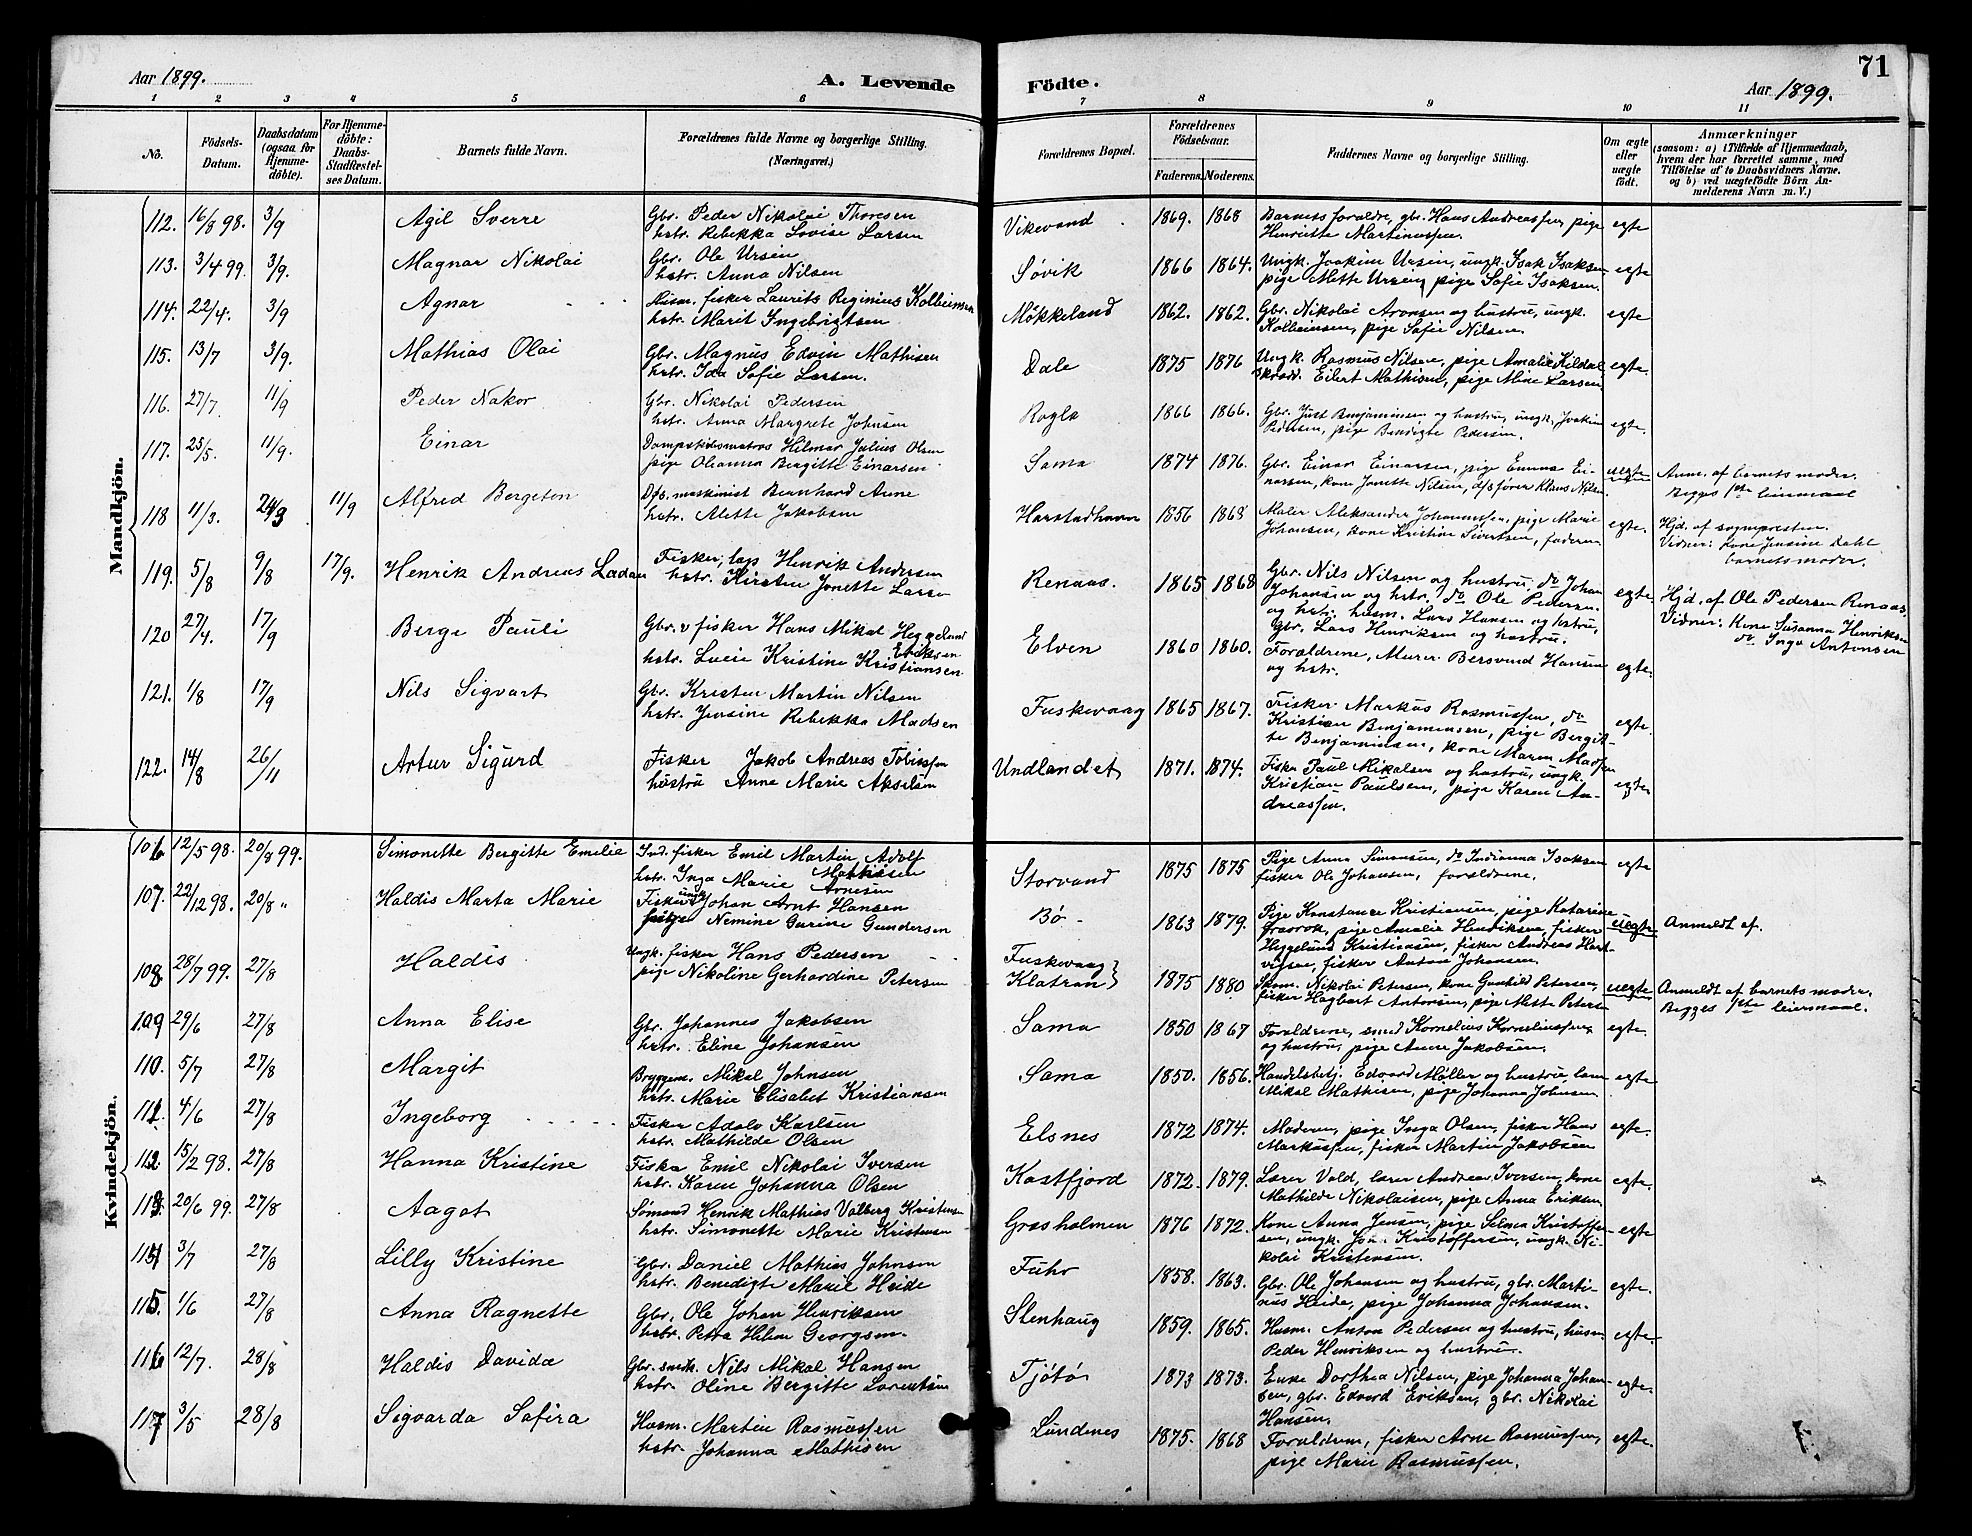 71
Aar 1899.
A. Levende
Födte.
Aar 1899.
1 2 3 4 5 6 7 8 9 10 11
No.
Födsels-Datum.
Daabsdatum (ogsaa for Hjemme-döbte).
For Hjemme-döbte: Daabs-Stadfæstel-ses Datum.
Barnets fulde Navn.
Forældrenes fulde Navne og borgerlige Stilling.
(Næringsvei.)
Forældrenes Bopæl.
Forældrenes Födselsaar.
Faderens. Moderens.
Faddernes Navne og borgerlige Stilling.
Om ægte eller uægte födt.
Anmærkninger
(saasom: a) i Tilfælde af Hjemmedaab,
hvem der har forrettet samme, med
Tilföielse af to Daabsvidners Navne.
og b) ved uægtefödte Börn An-
melderens Navn m. V.)
Mandkjön.
112. 16/8 98. 3/9 Agil Sverre Gbr. Peder Nikolai Thoresen
hstr. Rebekka Lovise Larsen
Vikevand 1869. 1868 Barnets forældre, gbr. Hans Andreassen, pige
Henriette Martinussen. egte
113. 3/4 99. 3/9. Magnar Nikolai Gbr. Ole Ursin
hstr. Anna Nilsen
Søvik 1866 1864. Ungk. Joakim Ursin, ungk. Isak Isaksen
pige Mette Ursin, pige Sofie Isaksen. egte
114. 22/4. 3/9 Agnar Husm. fisker Laurits Reginius Kolbeinsen
hstr. Marit Ingebrigtsen
Møkkeland 1862. 1862. Gbr. Nikolai Aronsen og hustru, ungk.
Kolbeinsen, pige Sofie Nilsen. egte
115. 13/7 3/9. Mathias Olai Gbr. Magnus Edvin Mathisen
hstr. Ida Sofie Larsen.
Dale 1875 1876 Ungk. Rasmus Nilsen, pige Amalie Kildal
skrædd. Eilert Mathisen, pige Mine Larsen egte.
116. 27/7. 11/9 Peder Nakor Gbr. Nikolai Pedersen
hstr. Anna Margrete Johnsen
Rogla 1866 1866. Gbr. Just Benjaminsen og hustru, ungk. Joakim
Pedersen, pige Bendigte Pedersen. egte.
117. 25/5. 11/9. Einar Dampskibsmatros Hilmar Julius Olsen
pige Oleanna Bergitte Einarsen
Sama 1874 1876. Gbr. Einar Einarsen, pige Emma Ei-
narsen, kone Janette Nilsen, d/s fører Klaus Nilsen. uegte
Anm. af barnets moder.
Begges 1ste leiermaal
118 11/3. 24/3 11/9 Alfred Bergeton D/s. maskinist Bernhard Arne
hstr. Alette Jakobsen
Harstadhavn 1856 1868 Maler Aleksander Johannessen, pige Marie
Johansen, kone Kristine Sivertsen, faderen egte.
Hjd. af sognepresten.
Vidner: kone Jensine Dahl
barnets moder.
119. 5/8 9/8 17/9. Henrik Andreas Ladan Fisker, lap Henrik Andersen
hstr. Kirsten Jonette Larsen
Renaas. 1865 1868 Gbr. Nils Nilsen og hustru, do Johan
Johansen og hstr. do Ole Pedersen
og hstr. husm. Lars Hansen og hstru,
Gbr. Lars Henriksen og hustru. egte
Hjd. af Ole Pedersen Renaas.
Vidner: Kone Susanna Henriksen
do Inga Antonsen
120 27/4. 17/9 Berge Pauli Gbr. & fisker Hans Mikal Heggelund
Eriksen
hstr. Lucie Kristine Kristiansen
Elven 1860 1860. Forældrene, Murer Bersvend Hansen
og hstr. egte.
121. 1/8 17/9 Nils Sigvart Gbr. Kristen Martin Nilsen
hstr. Jensine Rebekka Madsen
Fuskevaag 1865 1867. Fisker Markus Rasmussen, do
Kristian Benjaminsen, pige Bergit-
te Benjaminsen, kone Maren Madsen egte.
122. 14/8 26/11 Artur Sigurd Fisker Jakob Andreas Tobiassen
hustru Anne Marie Akselsen
Undlandet 1871. 1874. Fisker Paul Mikalsen og hustru, ungk.
Kristian Paulsen, pige Karen An-
dreassen. egte
Kvindekjön.
106 12/5 98. 20/8 99. Simonette Bergitte Emelie Ind. fisker Emil Martin Adolf
Mathisen
hstr. Inga Marie Arnesen
Storvand 1875 1875 Pige Anna Simonsen, do Indianna Isaksen
fisker Ole Johansen, forældrene. egte
107. 22/12 98. 20/8 " Haldis Marta Marie Fisker ungk. Johan Arnt Hansen
pige Nemine Gurine Gundersen
Bø 1863 1879. Pige Konstanse Kristiansen, pige Katarine
, pige Amalie Henriksen, fisker
Heggelund Kristiansen, fisker Andreas Hart-
vigsen, fisker Anton Johansen. uegte
Anmeldt af.
108. 28/7 99. 27/8 Haldis Ungk. fisker Hans Pedersen
pige Nikoline Gerhardine Petersen
Fuskevaag
Klatran 1875 1880 Skom. Nikolai Petersen, kone Gunhild Petersen,
fisker Hagbart Antonsen, pige Mette Petersen uegte
Anmeldt af barnets moder.
Begges 1ste leiermaal.
109 29/6 27/8 Anna Elise Gbr. Johannes Jakobsen
hstr. Eline Johansen
Sama 1850 1867 Forældrene, smed Kornelius Korneliussen
og hustru, pige Anne Jakobsen. egte.
110. 5/7 27/8 Margit Bryggem. Mikal Johnsen
hstr. Marie Elisabet Kristiansen
Sama 1850. 1856. Handelsbetj. Edvard Møller og hustru
Mikal Mathisen, pige Johanna Johnsen egte
111 4/6 27/8 Ingeborg Fisker Adolv Karlsen
hstr. Mathilde Olsen
Elsnes 1872 1874. Moderen, pige Inga Olsen, fisker Hans
Markussen, fisker Martin Jakobsen egte.
112 15/2 98. 27/8 Hanna Kristine Fisker Emil Nikolai Iversen
hstr. Karen Johanna Olsen
Kastfjord 1872. 1879. Lærer Vold, lærer Andreas Iversen, kone
Mathilde Nikolaisen, pige Anna Eriksen egte.
113. 20/6 99. 27/8 Aagot Sømand Henrik Mathias Valberg Kristensen
hstr. Simonette Marie Kristensen
Græsholmen 1876 1872. Kone Anna Jensen, pige Selma Kristoffer-
sen, ungk. Joh. Kristoffersen, ungk. Ni-
kolai Kristensen. egte
114 3/7 27/8 Lilly Kristine Gbr. Daniel Mathias Johnson
hstr. Benedigte Marie Heide
Fuhr 1858. 1863. Gbr. Ole Johansen og hustru, gbr. Marti-
nus Heide, pige Johanna Johansen. egte.
115. 1/6 27/8 Anna Ragnette Gbr. Ole Johan Henriksen
hstr. Petra Georgsen.
Stenhaug 1859. 1865. Husm. Anton Pedersen og hustru, husm
Peder Henriksen og hustru. egte.
116 12/7. 28/8 Haldis Davida Gbr. snedk. Nils Mikal Hansen
hstr. Oline Bergitte Lorentsen
Tjøtø 1873 1873. Enke Dorthea Nilsen, pige Johanna Johan-
sen, gbr. Edvard Eriksen, gbr. Nikolai
Hansen. egte.
117 3/5 28/8 Sigvarda Safira Husm. Martin Rasmussen
hstr. Johanna Mathisen
Lundenes 1875. 1868 Forældrene, fisker Arne Rasmussen,
pige Marie Rasmussen. egte.